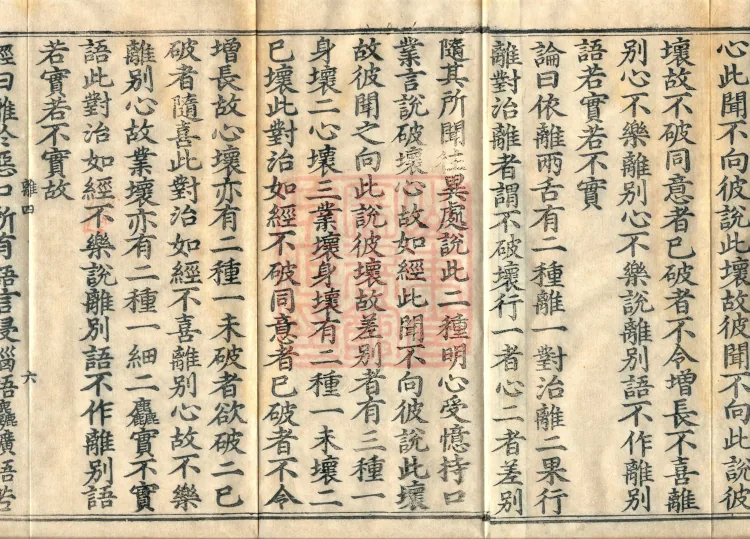 心此聞不向彼說此壞故彼聞不向此說彼
壞故不破同意者已破者不令增長不喜離
別心不樂離別心不樂說離別語不作離別
語若實若不實
論曰依離兩舌有二種離一對治離二果行
離對治離者謂不破壞行一者心二者差別
隨其所聞異處說此二種明心受憶持口
業言說破壞心故如經此聞不向彼說此壞
故彼聞不向此說彼壞故差別者有三種一
身壞二心壞三業壞身壞有二種一未壞二
已壞此對治如經不破同意者已破者不令
增長故心壞亦有二種一未破者欲破二已
破者隨喜此對治如經不喜離別心故不樂
離別心故業壞亦有二種一細二麤實不實
語此對治如經不樂說離別語不作離別語
若實若不實故
離四 六
經曰離於惡口所有語言侵惱語麤獷語苦